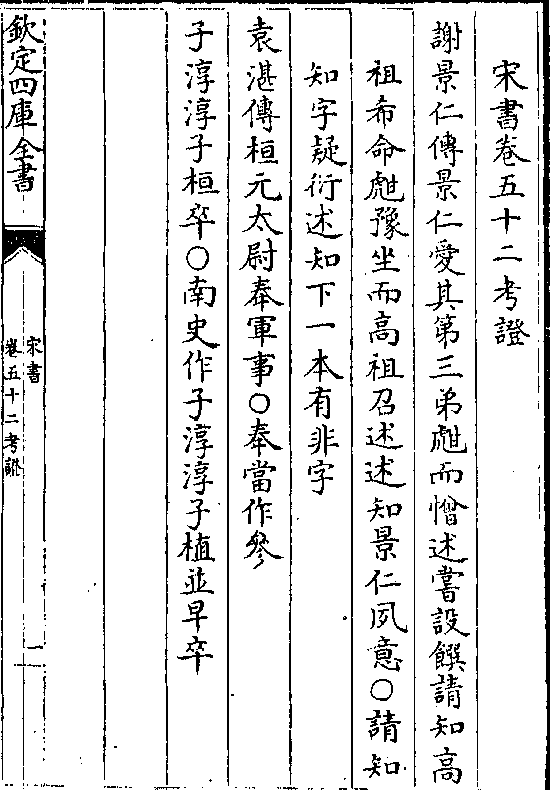 宋書卷五十二考證
謝景仁傳景仁愛其第三弟甝而憎述嘗設饌請知高
祖希命甝豫坐而高祖召述述知景仁夙意○請知
知字疑衍述知下一本有非字
袁湛傳桓元太尉奉軍事○奉當作參
子淳淳子桓卒○南史作子淳淳子植並早卒
欽定四庫全書
宋書
卷五十二考證
一